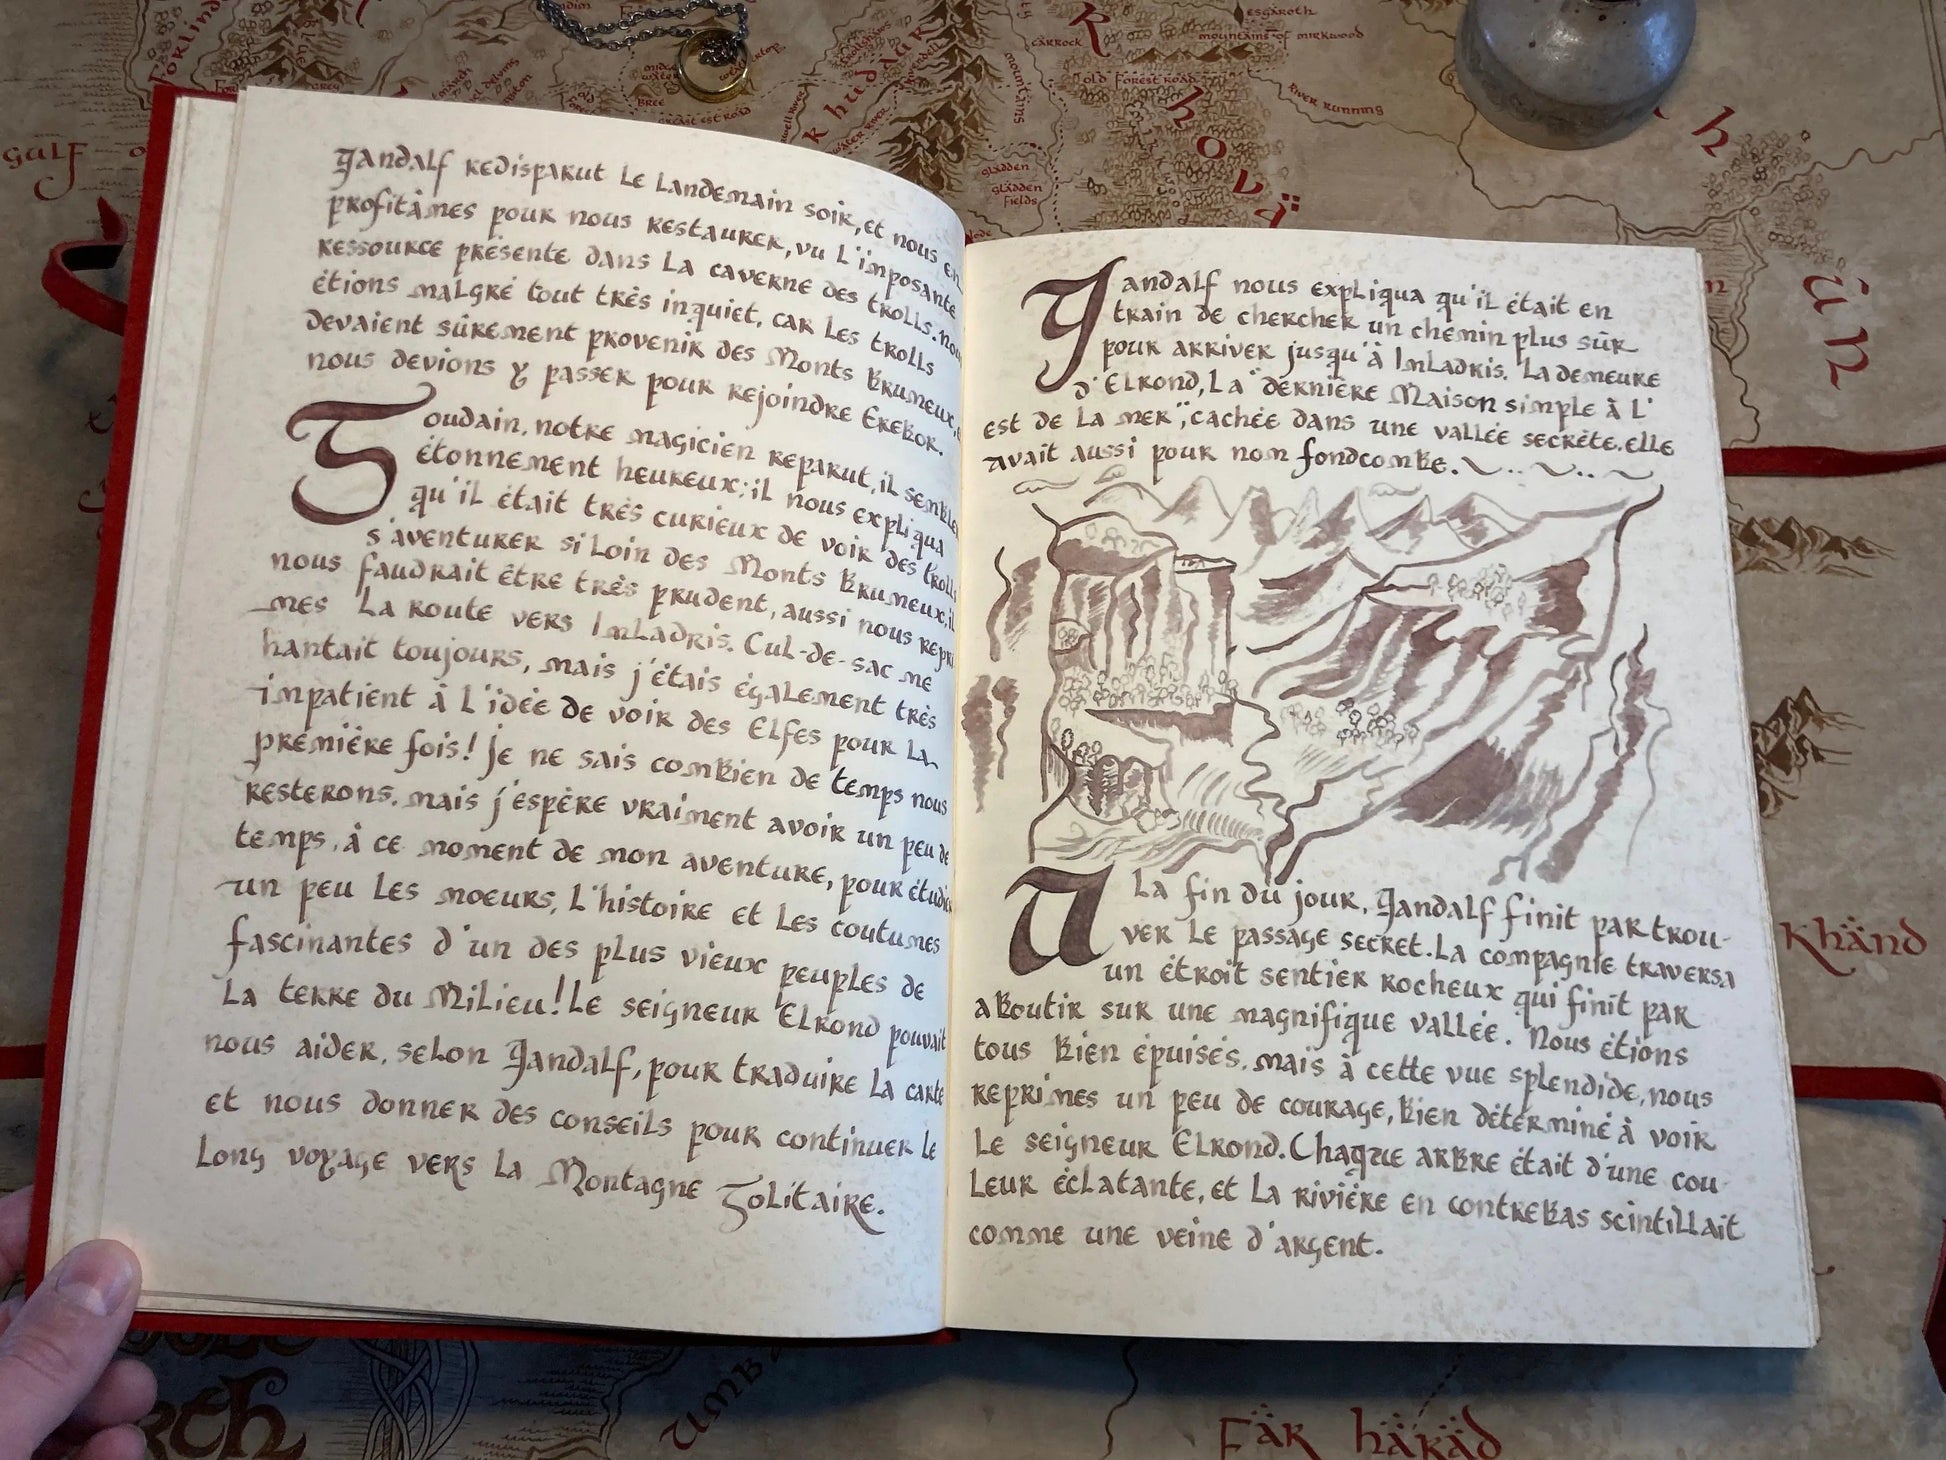 Gandalf redisparut le landemain soir, et nous en
profitâmes pour nous restaurer, vu l'imposante
ressource présente dans la caverne des trolls. nous
étions malgré tout très inquiet, car les trolls
devaient sûrement provenir des Monts Brumeux, et
nous devions y passer pour rejoindre Erebor.
Soudain, notre magicien reparut, il semblait
étonnement heureux; il nous expliqua
qu'il était très curieux de voir des trolls
s'aventurer si loin des Monts Brumeux, il
nous faudrait être très prudent, aussi nous repri
mes la route vers Imladris. Cul-de-sac me
hantait toujours, mais j'étais également très
impatient à l'idée de voir des Elfes pour la
première fois! Je ne sais combien de temps nous
resterons, mais j'espère vraiment avoir un peu de
temps, à ce moment de mon aventure, pour étudier
un peu les moeurs, l'histoire et les coutumes
fascinantes d'un des plus vieux peuples de
la terre du Milieu! Le seigneur Elrond pouvait
nous aider, selon Gandalf, pour traduire la carte
et nous donner des conseils pour continuer le
long voyage vers la Montagne Solitaire.
Gandalf nous expliqua qu'il était en
train de chercher un chemin plus sûr
pour arriver jusqu'à Imladris. La demeure
d'Elrond, la "dernière Maison simple à l'
est de la mer", cachée dans une vallée secrète. elle
avait aussi pour nom fondcombe.
A la fin du jour, Gandalf finit par trou-
ver le passage secret. La compagnie traversa
un étroit sentier rocheux qui finit par
aboutir sur une magnifique vallée. Nous étions
tous bien épuisés, mais à cette vue splendide, nous
reprimes un peu de courage, bien déterminé à voir
le seigneur Elrond. Chaque arbre était d'une cou-
leur éclatante, et la rivière en contrebas scintillait
comme une veine d'argent.
Forlind
Gulf
Bree
Great East Road
Carrock
Old Forest Road
Esgaroth
Mountains of Mirkwood
River Running
Gladden
Gladden
Fields
Rhûn
Khänd
Fär Häräd
Umb